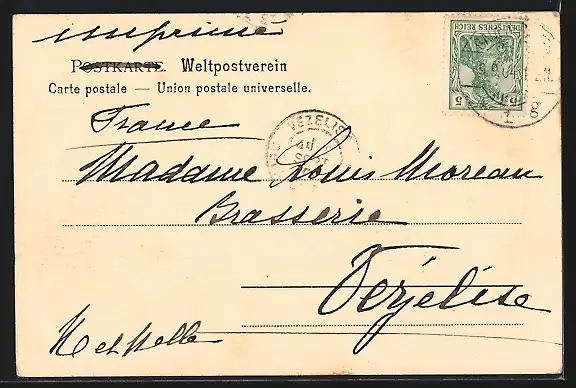 imprimé
POSTKARTE. Weltpostverein
Carte postale — Union postale universelle.
DEUTSCHES REICH
5
France
VEZELISE
SEPT
Madame Louis Moreau
Brasserie
Vezelise
M et Melle